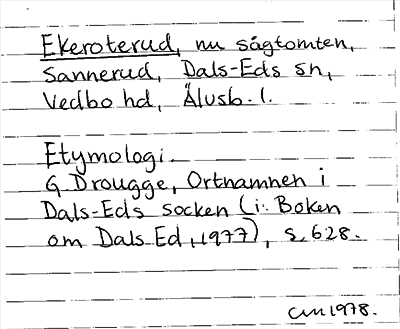 Ekeroterud, nu sågtomten,
Sannerud, Dals-Eds sn,
Vedbo hd, Älvsb. l.
Etymologi.
G Drougge, Ortnamnen i
Dals-Eds socken (i: Boken
om Dals Ed, 1977), s. 628.
1978.